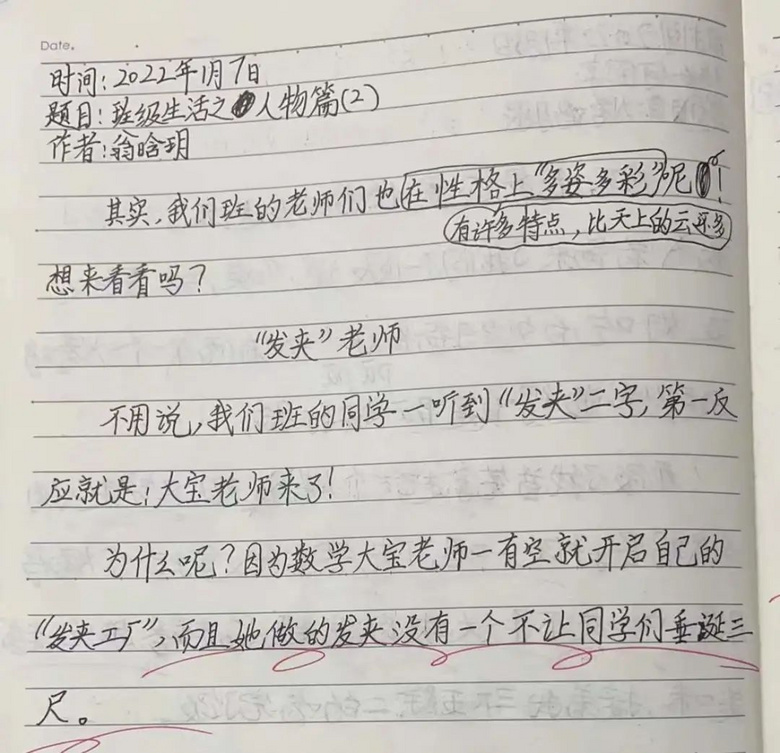 Date.
时间：2022年1月7日
题目：班级生活之人物篇(2)
作者：翁晗玥
其实，我们班的老师们也在性格上“多姿多彩”呢！
有许多特点，比天上的云还多
想来看看吗？
“发夹”老师
不用说，我们班的同学一听到“发夹”二字，第一反
应就是：大宝老师来了！
为什么呢？因为数学大宝老师一有空就开启自己的
“发夹工厂”，而且她做的发夹没有一个不让同学们垂涎三
尺。